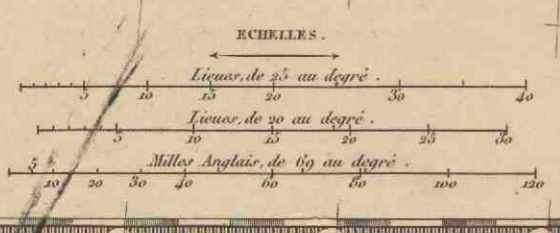 ECHELLES.
Lieues, de 25 au degré.
5 10 15 20 30 40
Lieues, de 20 au degré.
5 10 15 20 25 30
Milles Anglais, de 69 au degré.
5 10 20 30 40 60 80 100 120